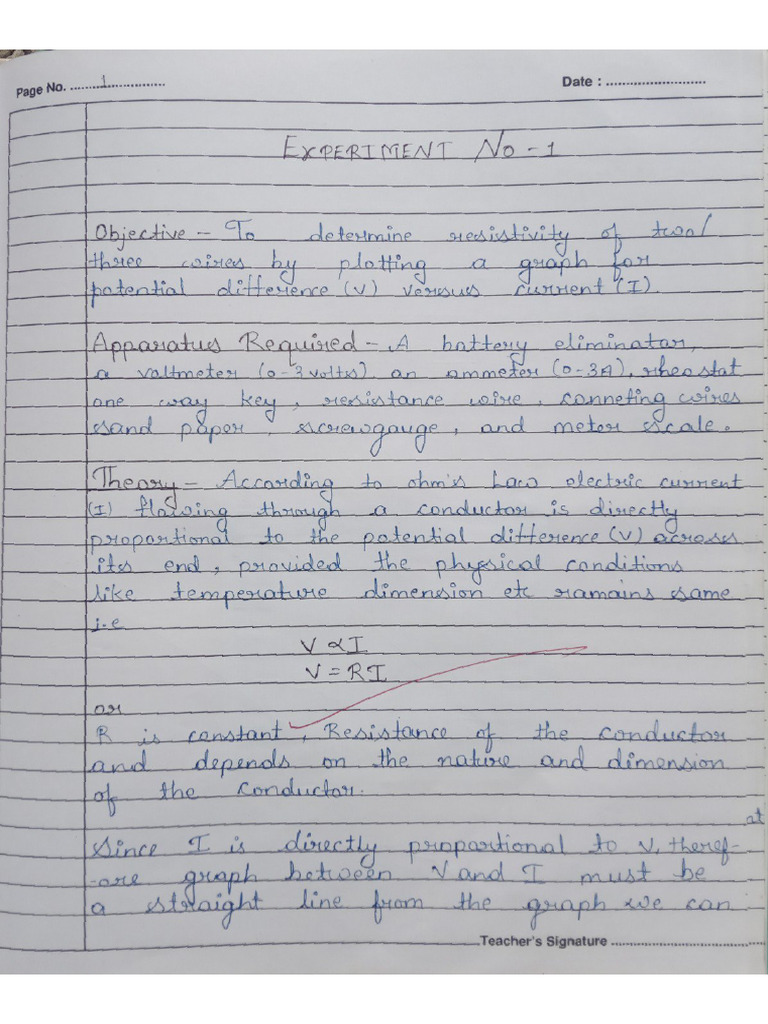 Page No. ......1...................
Date : ..........................
EXPERIMENT No - 1
Objective - To determine resistivity of two/
three wires by plotting a graph for
potential difference (V) versus current (I).
Apparatus Required - A battery eliminator,
a voltmeter (0-3 volts), an ammeter (0-3A), rheostat
one way key, resistance wire, conneting wires
sand paper, screwgauge, and meter scale.
Theory - According to ohm's Law electric current
(I) flowing through a conductor is directly
proportional to the potential difference (V) across
its end, provided the physical conditions
like temperature dimension etc ramains same
i.e
V ∝ I
V = RI
or
R is constant, Resistance of the conductor
and depends on the nature and dimension
of the conductor.
at
Since I is directly proportional to V, theref-
-ore graph between V and I must be
a straight line from the graph we can
Teacher's Signature ....................................